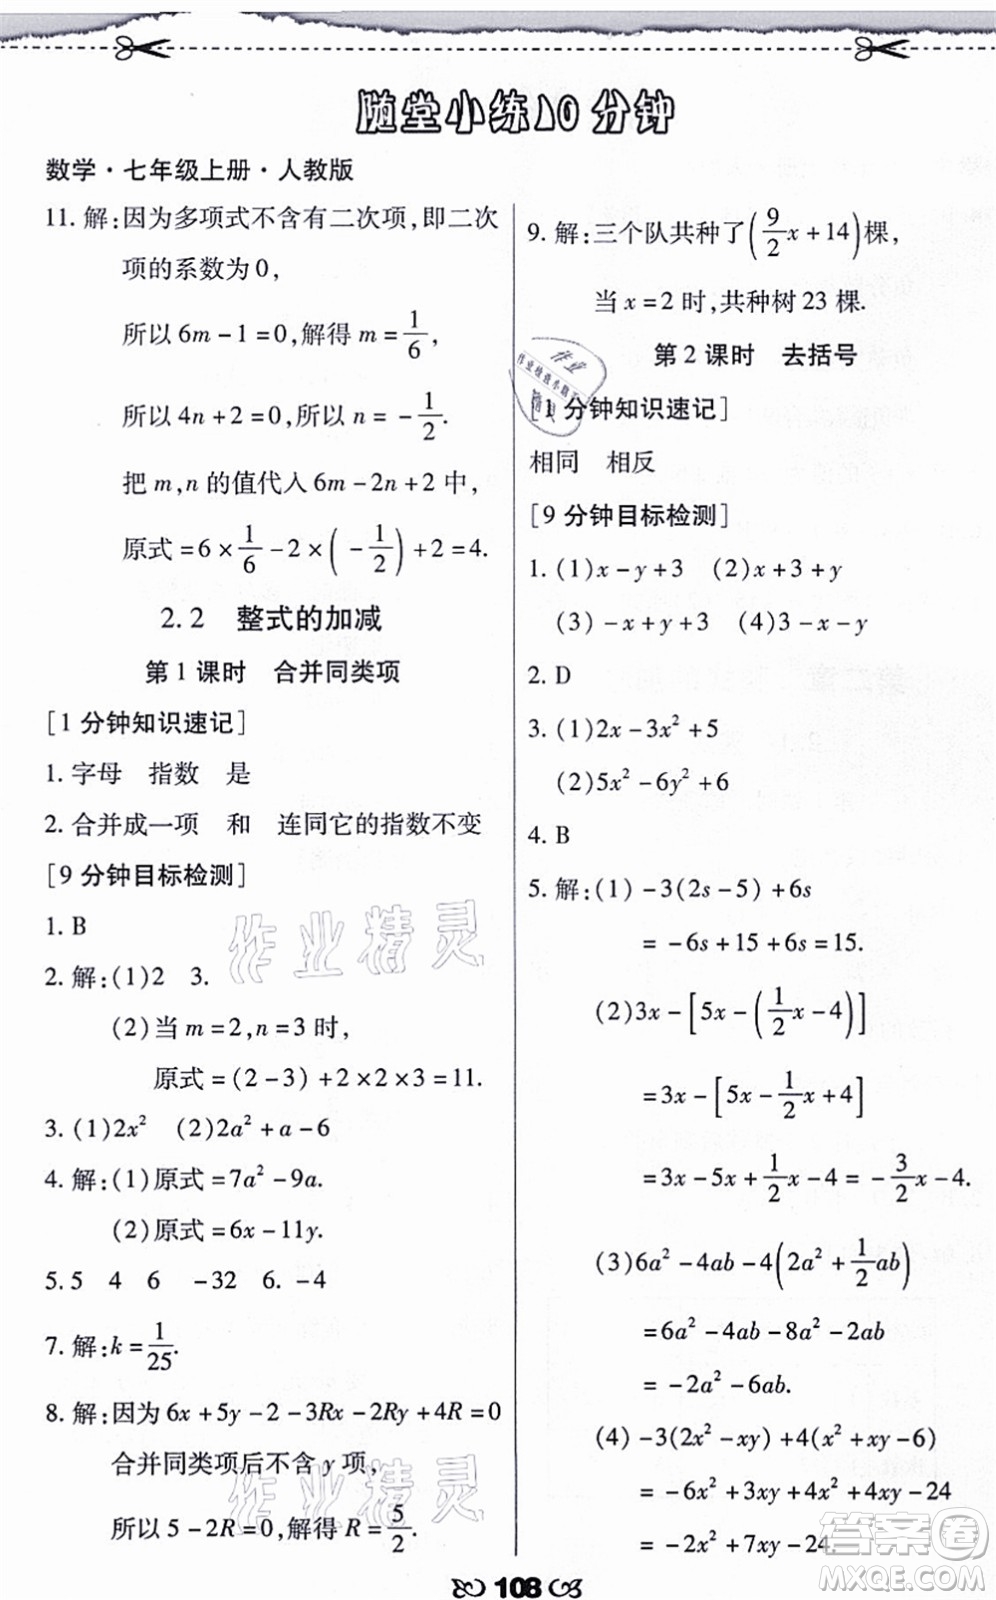 随堂小练10分钟
数学·七年级上册·人教版
11. 解:因为多项式不含有二次项,即二次
项的系数为0,
所以 6m-1=0,解得 m=1/6,
所以 4n+2=0,所以 n=-1/2.
把 m,n 的值代入 6m-2n+2 中,
原式=6×1/6-2×(-1/2)+2=4.
2.2 整式的加减
第1课时 合并同类项
[1分钟知识速记]
1. 字母 指数 是
2. 合并成一项 和 连同它的指数不变
[9分钟目标检测]
1. B
2. 解:(1)2 3.
(2)当 m=2,n=3 时,
原式=(2-3)+2×2×3=11.
3. (1)2x² (2)2a²+a-6
4. 解:(1)原式=7a²-9a.
(2)原式=6x-11y.
5. 5 4 6 -32 6. -4
7. 解:k=1/25.
8. 解:因为 6x+5y-2-3Rx-2Ry+4R=0
合并同类项后不含 y 项,
所以 5-2R=0,解得 R=5/2.
9. 解:三个队共种了(9/2x+14)棵,
当 x=2 时,共种树 23 棵.
第2课时 去括号
[1分钟知识速记]
相同 相反
[9分钟目标检测]
1. (1)x-y+3 (2)x+3+y
(3)-x+y+3 (4)3-x-y
2. D
3. (1)2x-3x²+5
(2)5x²-6y²+6
4. B
5. 解:(1)-3(2s-5)+6s
=-6s+15+6s=15.
(2)3x-[5x-(1/2x-4)]
=3x-[5x-1/2x+4]
=3x-5x+1/2x-4=-3/2x-4.
(3)6a²-4ab-4(2a²+1/2ab)
=6a²-4ab-8a²-2ab
=-2a²-6ab.
(4)-3(2x²-xy)+4(x²+xy-6)
=-6x²+3xy+4x²+4xy-24
=-2x²+7xy-24.
108
作业精灵
作业精灵
答案圈
MXQE.COM